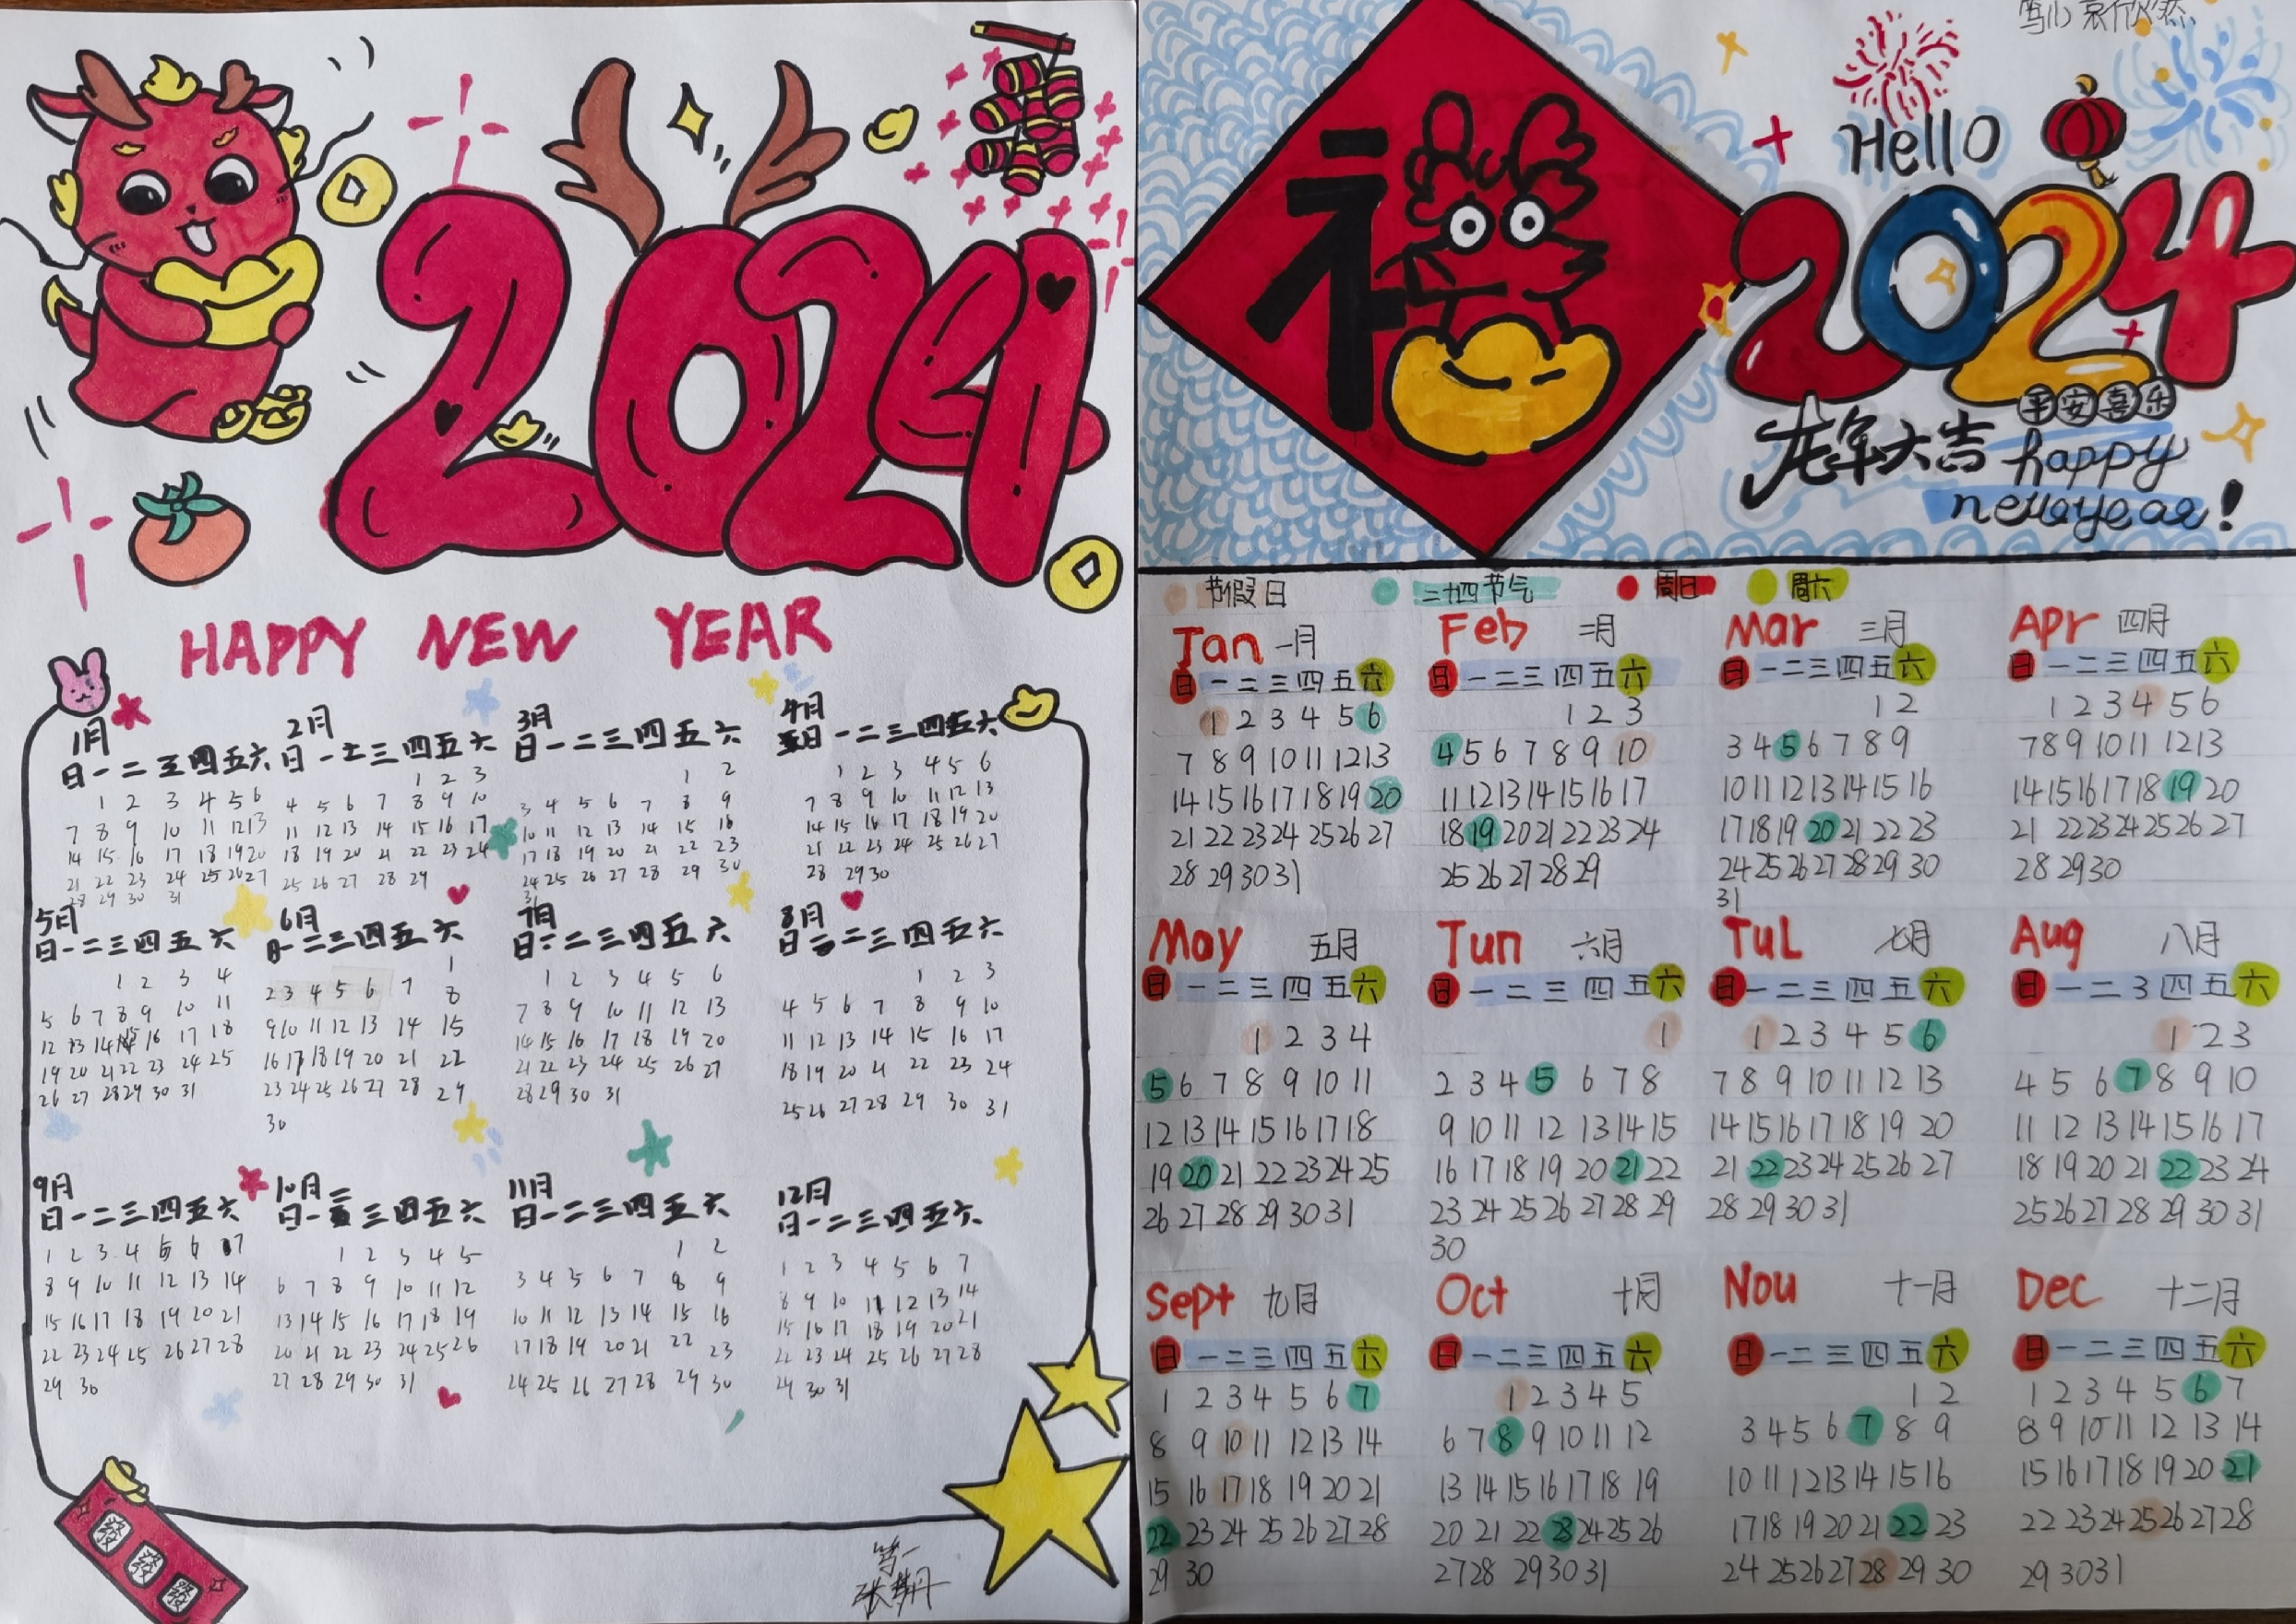 2024
HAPPY NEW YEAR
1月
日一二三四五六
1 2 3 4 5 6
7 8 9 10 11 12 13
14 15 16 17 18 19 20
21 22 23 24 25 26 27
28 29 30 31
2月
日一二三四五六
1 2 3
4 5 6 7 8 9 10
11 12 13 14 15 16 17
18 19 20 21 22 23 24
25 26 27 28 29
3月
日一二三四五六
1 2
3 4 5 6 7 8 9
10 11 12 13 14 15 16
17 18 19 20 21 22 23
24 25 26 27 28 29 30
31
4月
日一二三四五六
1 2 3 4 5 6
7 8 9 10 11 12 13
14 15 16 17 18 19 20
21 22 23 24 25 26 27
28 29 30
5月
日一二三四五六
1 2 3 4
5 6 7 8 9 10 11
12 13 14 15 16 17 18
19 20 21 22 23 24 25
26 27 28 29 30 31
6月
日一二三四五六
1
2 3 4 5 6 7 8
9 10 11 12 13 14 15
16 17 18 19 20 21 22
23 24 25 26 27 28 29
30
7月
日一二三四五六
1 2 3 4 5 6
7 8 9 10 11 12 13
14 15 16 17 18 19 20
21 22 23 24 25 26 27
28 29 30 31
8月
日一二三四五六
1 2 3
4 5 6 7 8 9 10
11 12 13 14 15 16 17
18 19 20 21 22 23 24
25 26 27 28 29 30 31
9月
日一二三四五六
1 2 3 4 5 6 7
8 9 10 11 12 13 14
15 16 17 18 19 20 21
22 23 24 25 26 27 28
29 30
10月
日一二三四五六
1 2 3 4 5
6 7 8 9 10 11 12
13 14 15 16 17 18 19
20 21 22 23 24 25 26
27 28 29 30 31
11月
日一二三四五六
1 2
3 4 5 6 7 8 9
10 11 12 13 14 15 16
17 18 19 20 21 22 23
24 25 26 27 28 29 30
12月
日一二三四五六
1 2 3 4 5 6 7
8 9 10 11 12 13 14
15 16 17 18 19 20 21
22 23 24 25 26 27 28
29 30 31
發
發
發
Hello
2024
平安喜乐
龙年大吉
happy
newyear!
节假日 二十四节气 周日 周六
Jan 一月
日一二三四五六
1 2 3 4 5 6
7 8 9 10 11 12 13
14 15 16 17 18 19 20
21 22 23 24 25 26 27
28 29 30 31
Feb 二月
日一二三四五六
1 2 3
4 5 6 7 8 9 10
11 12 13 14 15 16 17
18 19 20 21 22 23 24
25 26 27 28 29
Mar 三月
日一二三四五六
1 2
3 4 5 6 7 8 9
10 11 12 13 14 15 16
17 18 19 20 21 22 23
24 25 26 27 28 29 30
31
Apr 四月
日一二三四五六
1 2 3 4 5 6
7 8 9 10 11 12 13
14 15 16 17 18 19 20
21 22 23 24 25 26 27
28 29 30
May 五月
日一二三四五六
1 2 3 4
5 6 7 8 9 10 11
12 13 14 15 16 17 18
19 20 21 22 23 24 25
26 27 28 29 30 31
Tun 六月
日一二三四五六
1
2 3 4 5 6 7 8
9 10 11 12 13 14 15
16 17 18 19 20 21 22
23 24 25 26 27 28 29
30
TuL 七月
日一二三四五六
1 2 3 4 5 6
7 8 9 10 11 12 13
14 15 16 17 18 19 20
21 22 23 24 25 26 27
28 29 30 31
Aug 八月
日一二3四五六
1 2 3
4 5 6 7 8 9 10
11 12 13 14 15 16 17
18 19 20 21 22 23 24
25 26 27 28 29 30 31
Sept 九月
日一二三四五六
1 2 3 4 5 6 7
8 9 10 11 12 13 14
15 16 17 18 19 20 21
22 23 24 25 26 27 28
29 30
Oct 十月
日一二三四五六
1 2 3 4 5
6 7 8 9 10 11 12
13 14 15 16 17 18 19
20 21 22 23 24 25 26
27 28 29 30 31
Nou 十一月
日一二三四五六
1 2
3 4 5 6 7 8 9
10 11 12 13 14 15 16
17 18 19 20 21 22 23
24 25 26 27 28 29 30
Dec 十二月
日一二三四五六
1 2 3 4 5 6 7
8 9 10 11 12 13 14
15 16 17 18 19 20 21
22 23 24 25 26 27 28
29 30 31